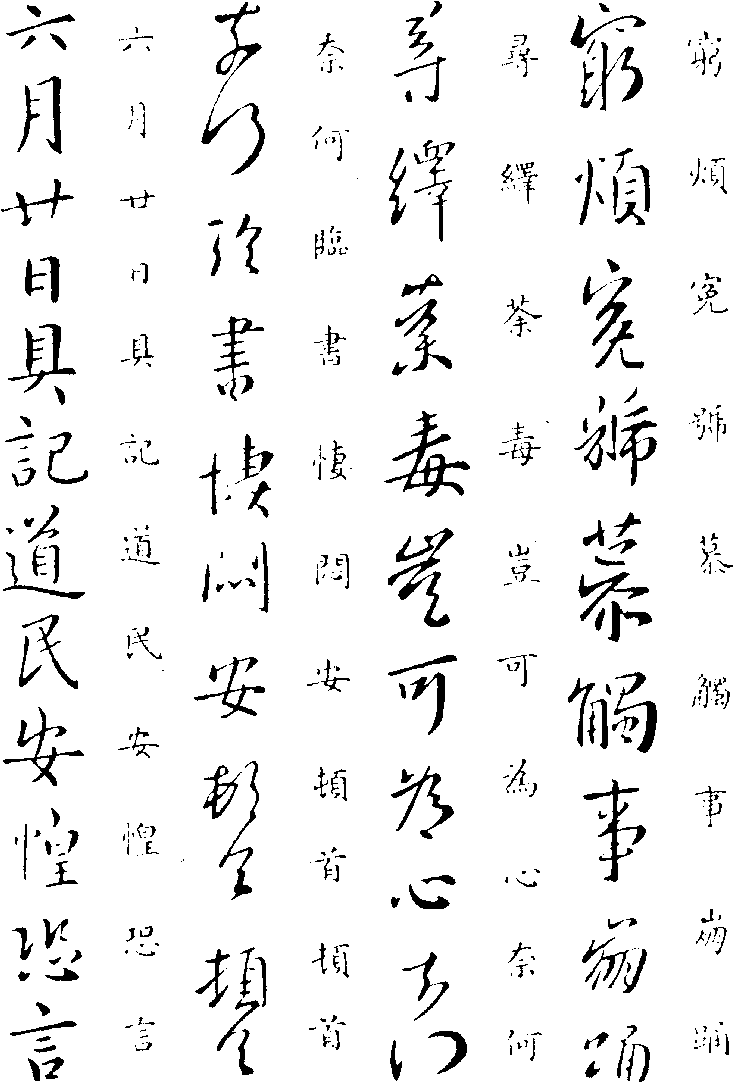 窮煩冤號慕觸事崩踊
窮煩冤號慕觸事崩踊
尋繹荼毒豈可為心奈何
尋繹荼毒豈可為心奈何
奈何臨書悽悶安頓首頓首
奈何臨書悽悶安頓首頓首
六月廿日具記道民安惶恐言
六月廿日具記道民安惶恐言